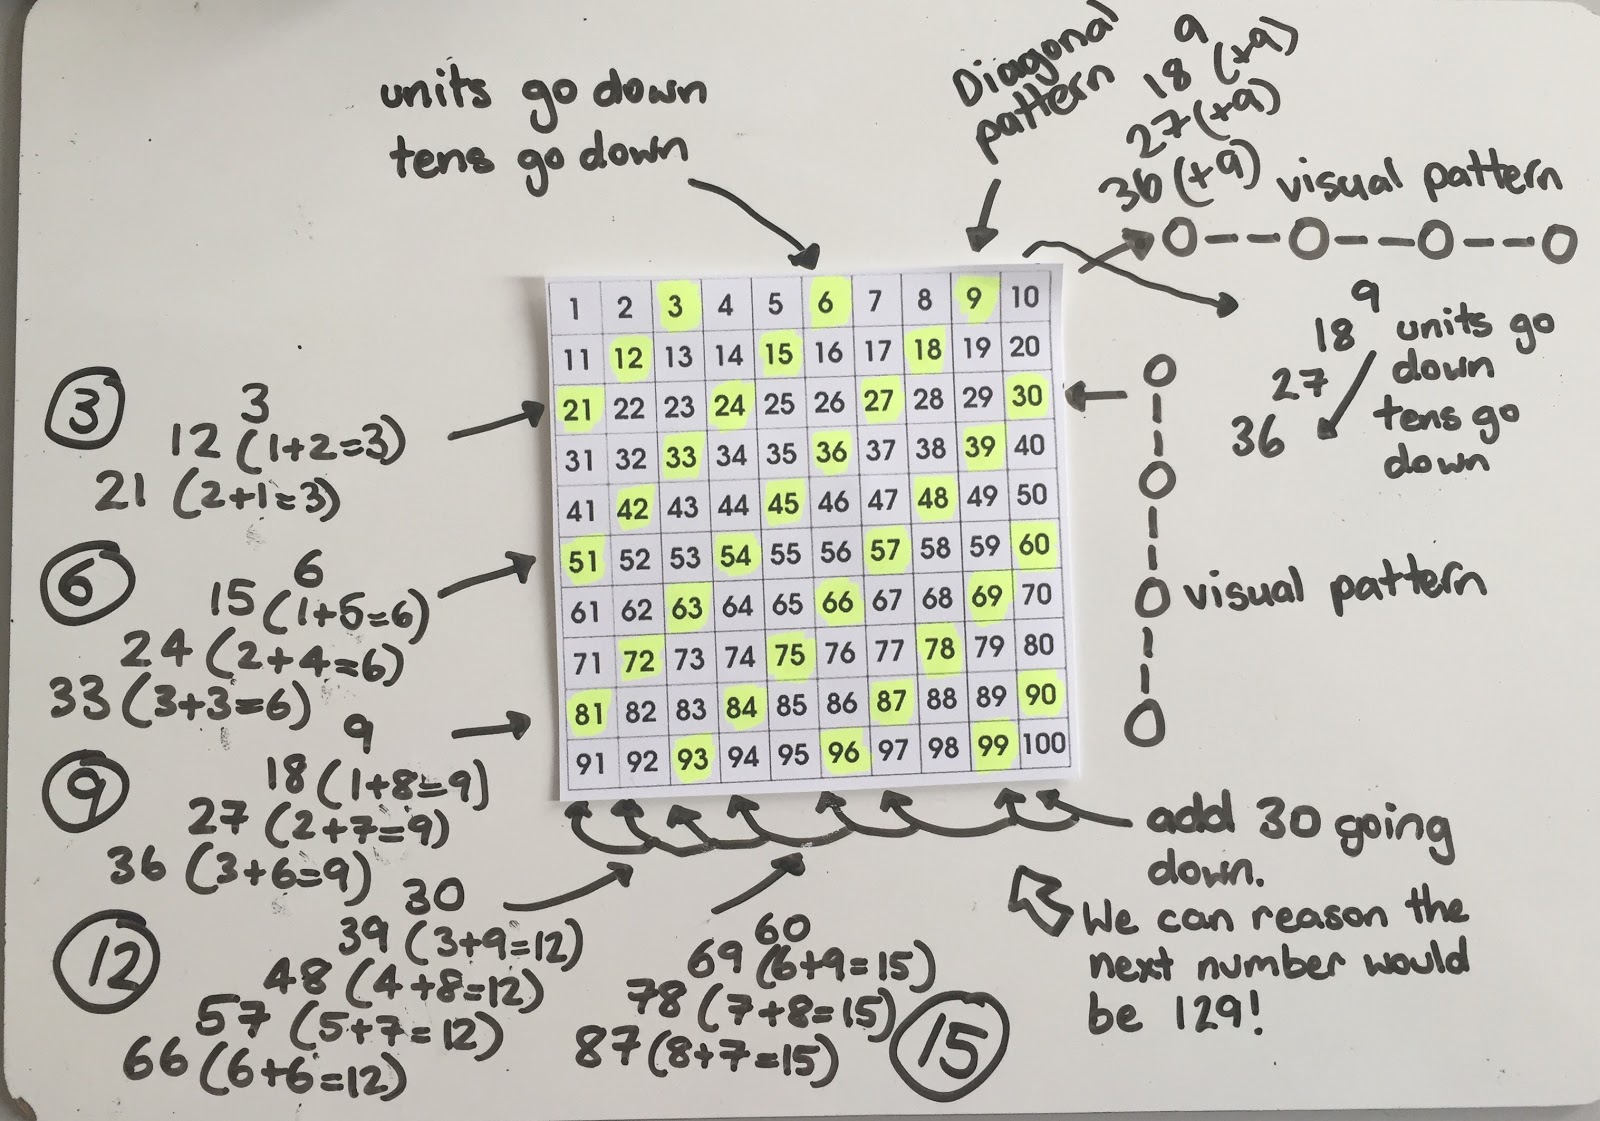 units go down
tens go down
Diagonal
pattern
9
18 (+9)
27 (+9)
36 (+9)
visual pattern
O--O--O--O
9
18
27
36
units go
down
tens go
down
1 2 3 4 5 6 7 8 9 10
11 12 13 14 15 16 17 18 19 20
21 22 23 24 25 26 27 28 29 30
31 32 33 34 35 36 37 38 39 40
41 42 43 44 45 46 47 48 49 50
51 52 53 54 55 56 57 58 59 60
61 62 63 64 65 66 67 68 69 70
71 72 73 74 75 76 77 78 79 80
81 82 83 84 85 86 87 88 89 90
91 92 93 94 95 96 97 98 99 100
3
3
12 (1+2=3)
21 (2+1=3)
6
6
15 (1+5=6)
24 (2+4=6)
33 (3+3=6)
9
9
18 (1+8=9)
27 (2+7=9)
36 (3+6=9)
12
30
39 (3+9=12)
48 (4+8=12)
57 (5+7=12)
66 (6+6=12)
60
69 (6+9=15)
78 (7+8=15)
87 (8+7=15)
15
visual pattern
add 30 going
down.
We can reason the
next number would
be 129!